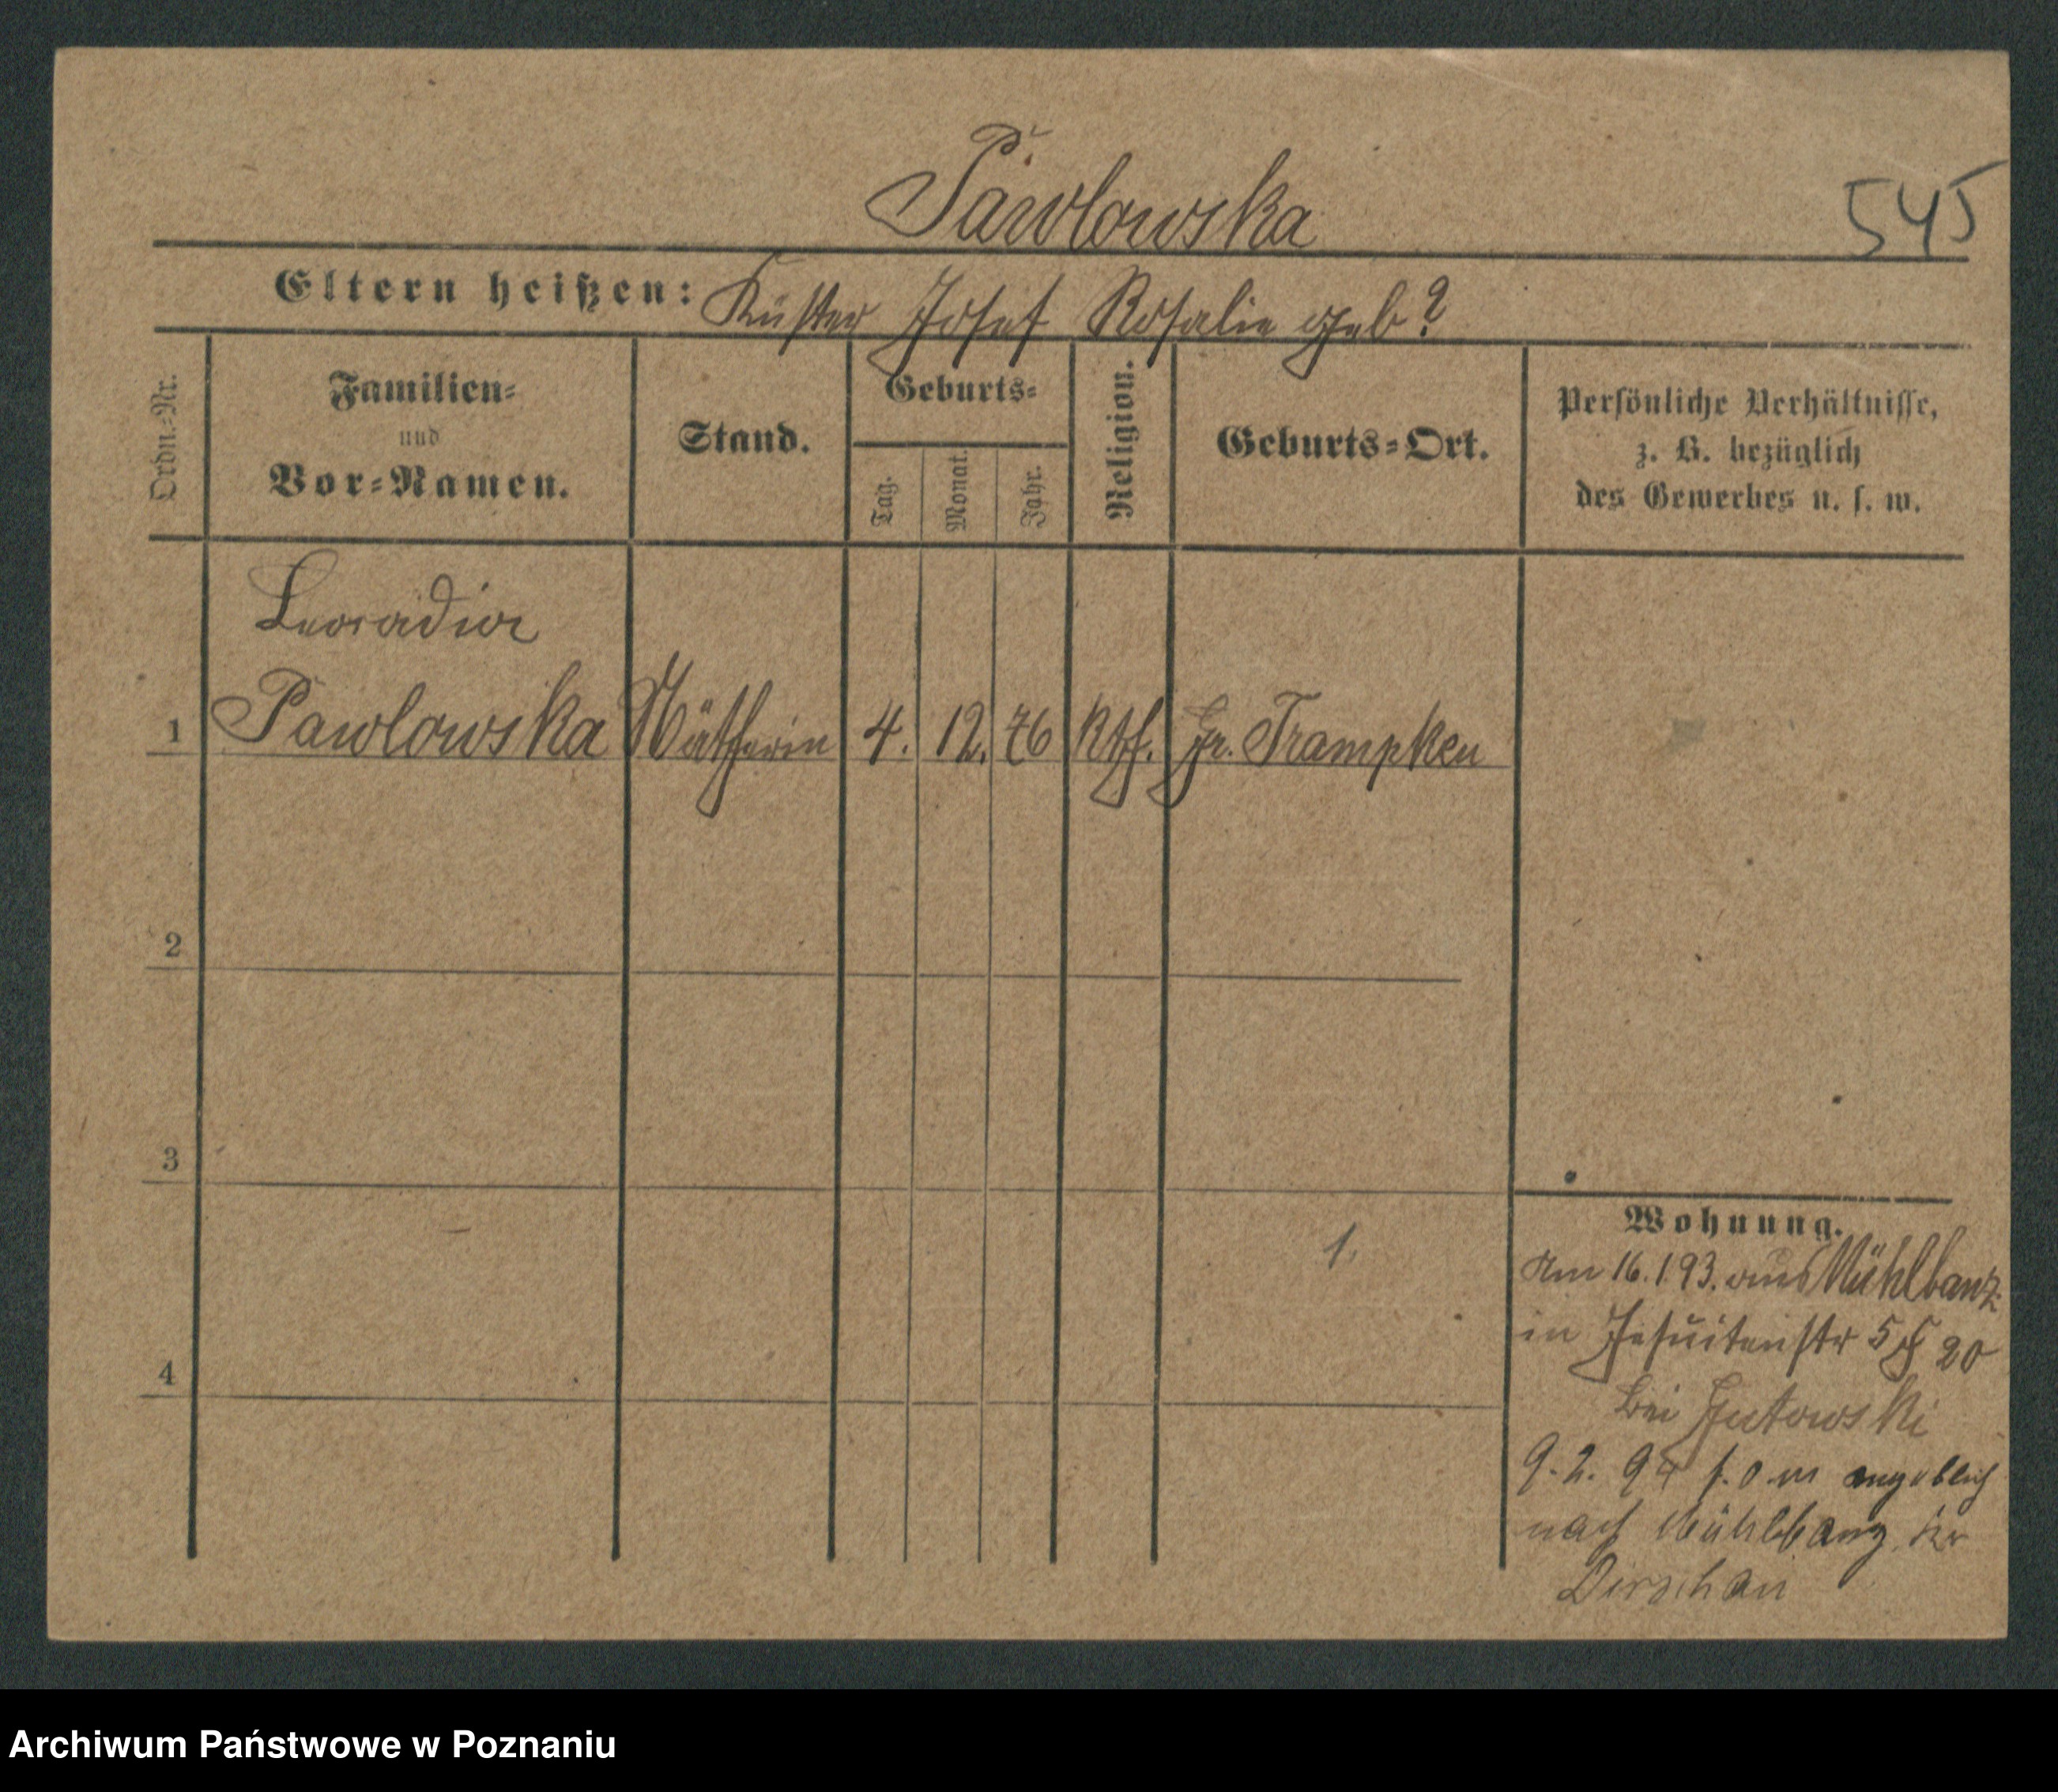 Pawlowska
545
Eltern heißen: Küster Josef Rosalie geb?
Ordn.-Nr.
Familien-
und
Vor-Namen.
Stand.
Geburts-
Tag.
Monat.
Jahr.
Religion.
Geburts-Ort.
Persönliche Verhältnisse,
z. B. bezüglich
des Gewerbes u. s. w.
Leocadia
1 Pawlowska Nätherin 4. 12. 76 Kth. Gr. Trampken
2
3
4
1.
Wohnung.
Am 16.1.93. aus Mühlbanz
in Jesuitenstr 5 H 20
bei Gutowski
9. 2. 94 angeblich
nach Mühlbanz Kr
Dirschau
Archiwum Państwowe w Poznaniu